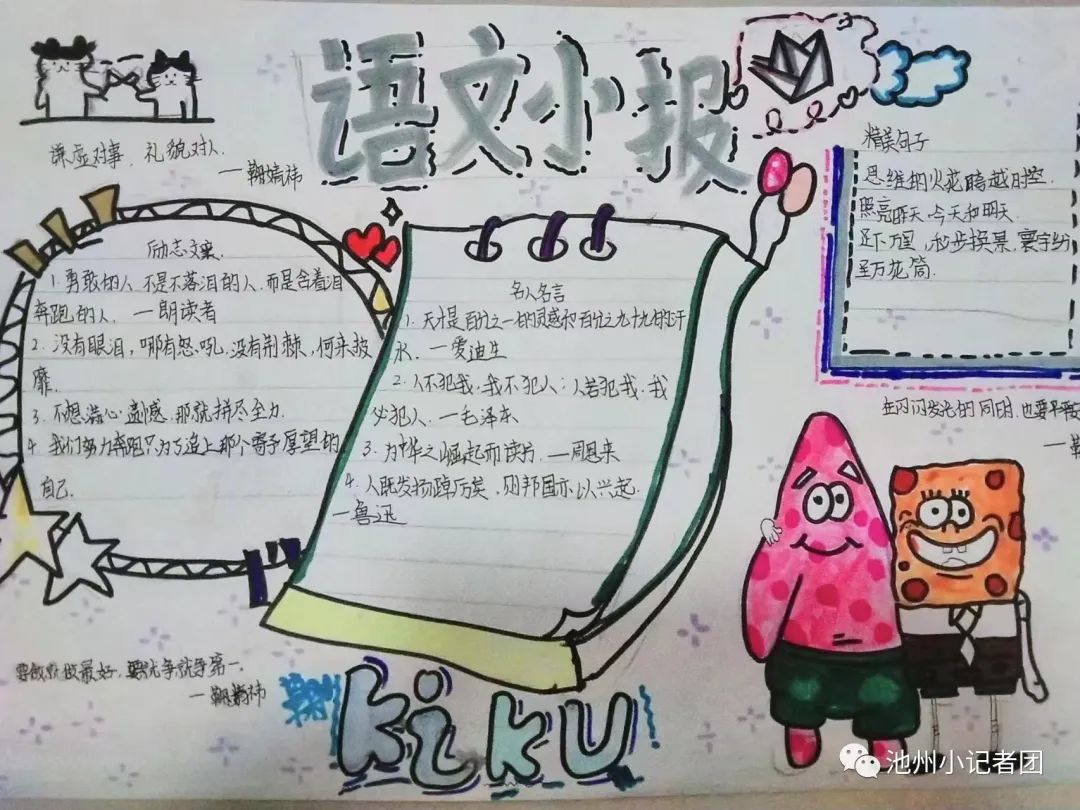 语文小报
谦虚对事，礼貌对人.
一鞠婧祎
励志文案.
1. 勇敢的人，不是不落泪的人，而是含着泪
奔跑的人. 一朗读者
2. 没有眼泪，哪有怒吼，没有荆棘，何来披
靡.
3. 不想满心遗憾，那就拼尽全力.
4. 我们努力奔跑只为了追上那个寄予厚望的
自己.
名人名言
1. 天才是百分之一的灵感和百分之九十九的汗
水. 一爱迪生
2. 人不犯我，我不犯人；人若犯我，我
必犯人. 一毛泽东
3. 为中华之崛起而读书. 一周恩来
4. 人既发扬踔厉矣，则邦国亦以兴起.
一鲁迅
精美句子
思维的火花跨越时空.
照亮昨天、今天和明天.
足下万里，移步换景，寰宇纷
呈万花筒.
在闪闪发光的同时，也要平
要做就做最好，要争就争第一.
一鞠婧祎
kiku
池州小记者团